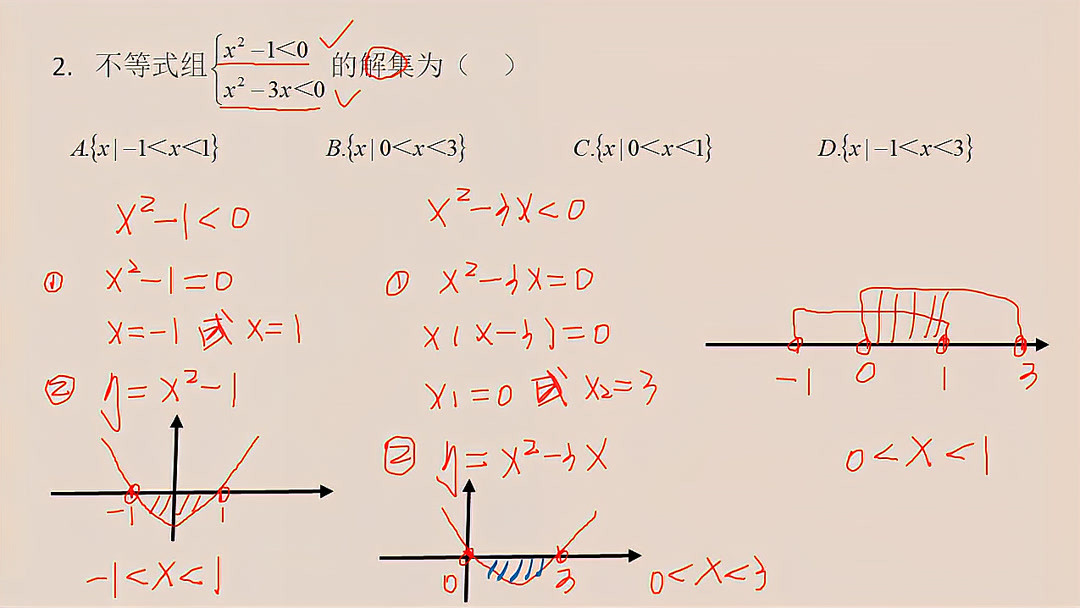 2. 不等式组{x²-1<0 x²-3x<0 的解集为（ ）
A.{x|-1<x<1} B.{x|0<x<3} C.{x|0<x<1} D.{x|-1<x<3}
x²-1<0
① x²-1=0
x=-1 或 x=1
② y=x²-1
-1 1
-1<x<1
x²-3x<0
① x²-3x=0
x(x-3)=0
x₁=0 或 x₂=3
② y=x²-3x
0 3
0<x<3
-1 0 1 3
0<x<1